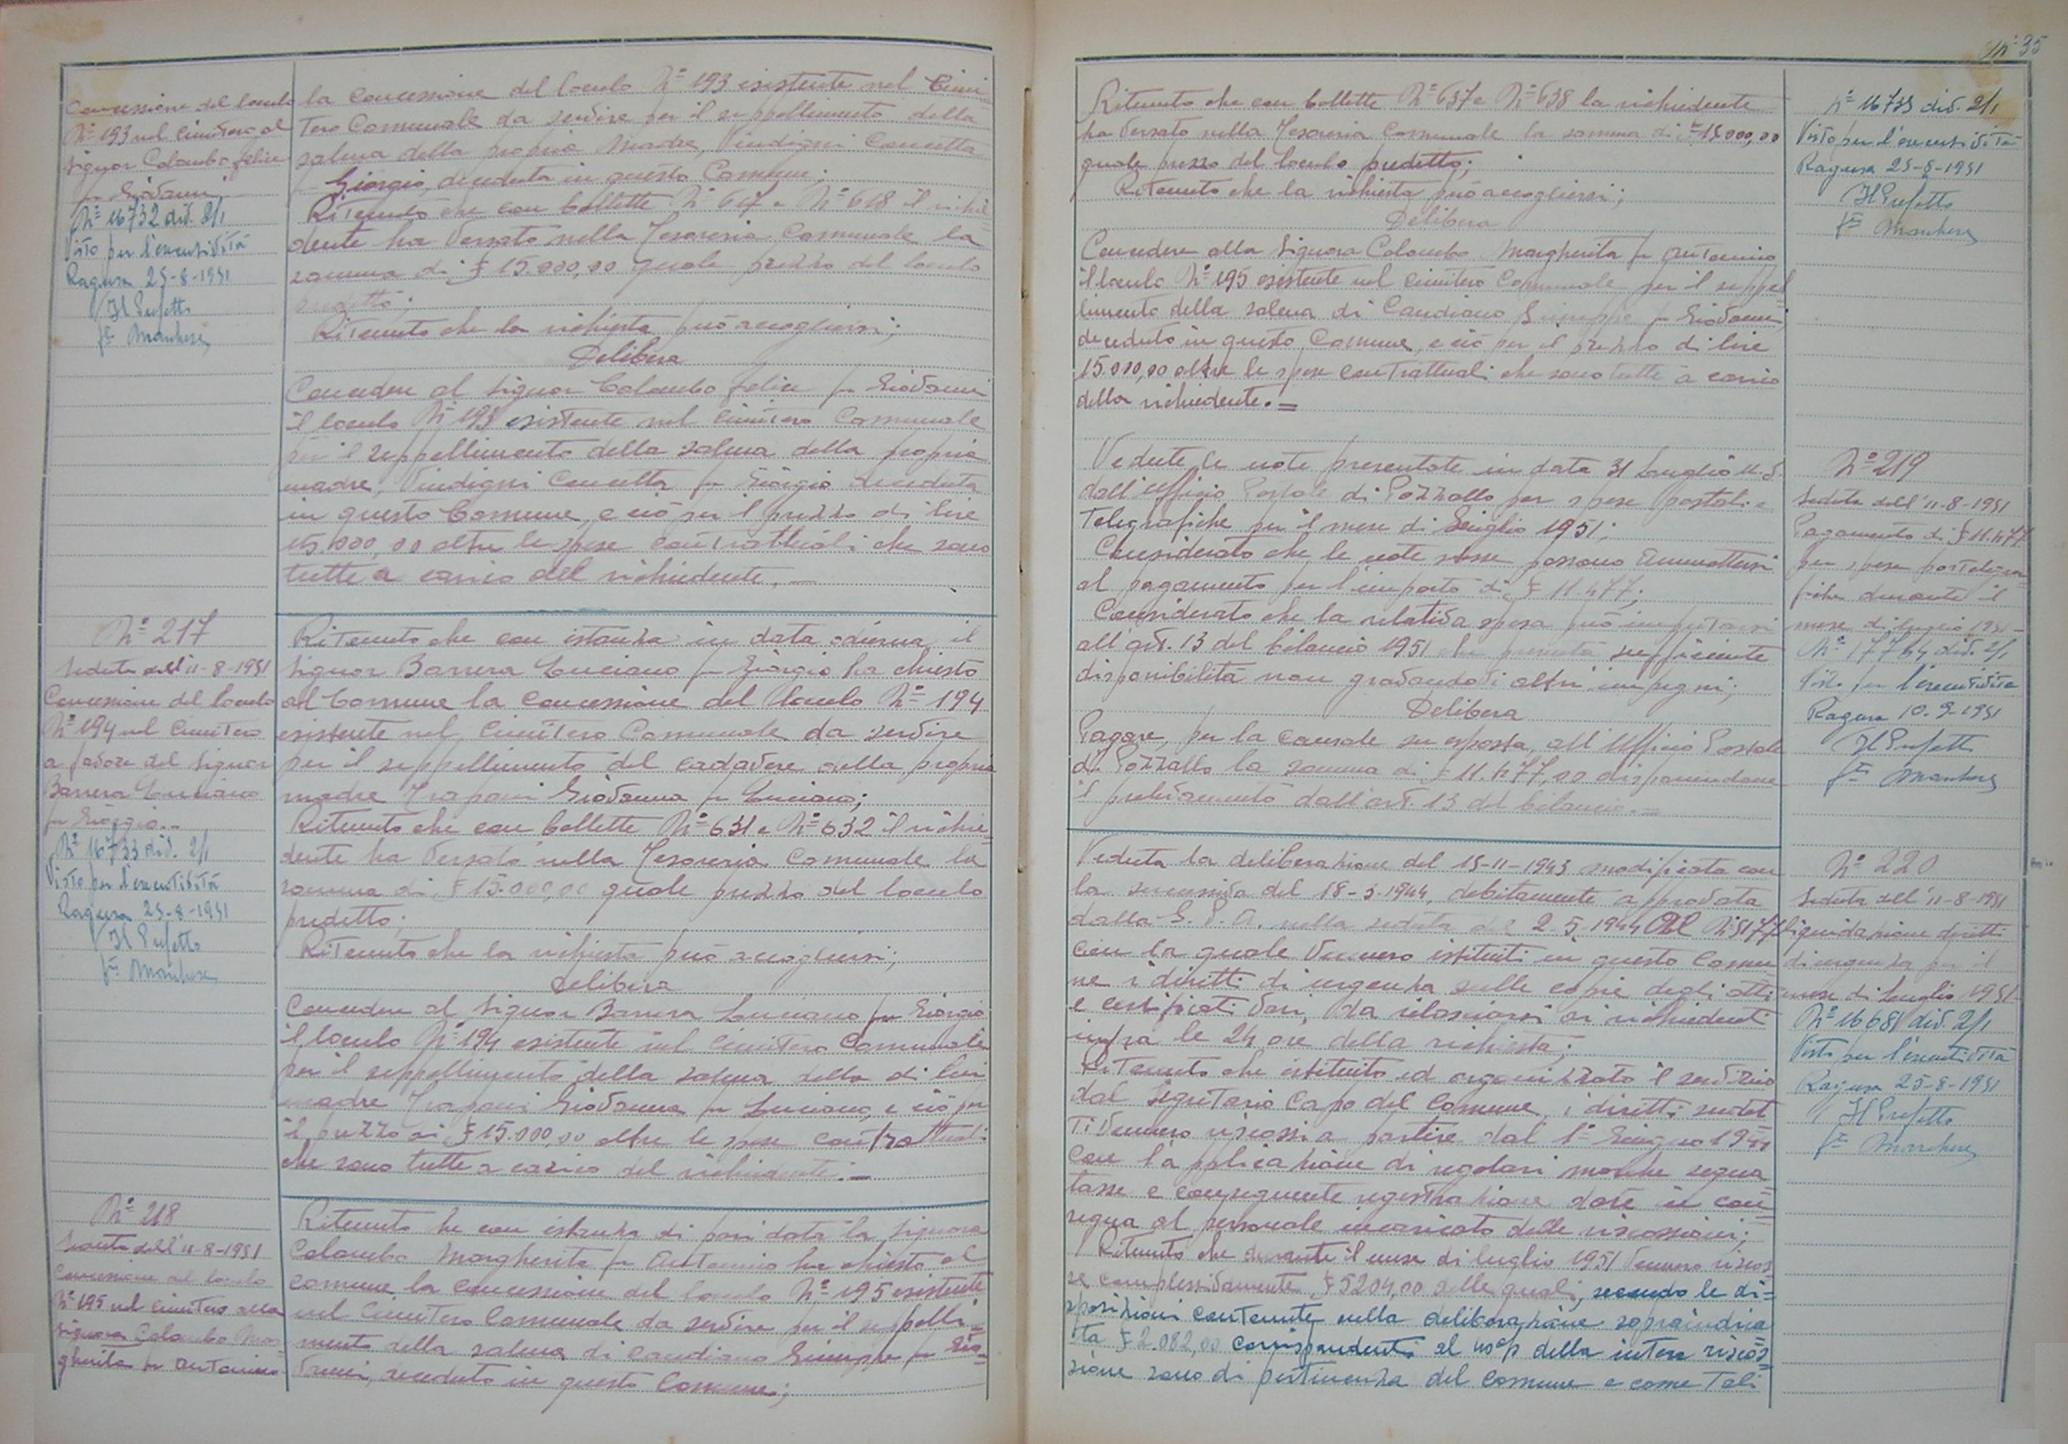 Concessione del loculo
N° 193 nel cimitero al
signor Colombo Felice
fu Giovanni
N° 16732 div. 2/1
Visto per l'esecutività
Ragusa 25-8-1951
Il Prefetto
f° Marchese
la concessione del loculo N° 193 esistente nel Cimi-
tero Comunale da servire per il seppellimento della
salma della propria madre, Vindigni Concetta
fu Giorgio, deceduta in questo Comune;
Ritenuto che con bollette N° 617 e N° 618 il richie-
dente ha versato nella Tesoreria Comunale la
somma di £ 15.000,00 quale prezzo del loculo
predetto;
Ritenuto che la richiesta può accogliersi;
Delibera
Concedere al signor Colombo Felice fu Giovanni
il loculo N° 193 esistente nel cimitero Comunale
per il seppellimento della salma della propria
madre, Vindigni Concetta fu Giorgio deceduta
in questo Comune, e ciò per il prezzo di lire
15.000,00 oltre le spese contrattuali che sono
tutte a carico del richiedente. —
N° 217
Seduta dell'11-8-1951
Concessione del loculo
N° 194 nel Cimitero
a favore del signor
Barrera Luciano
fu Giorgio.-
N° 16733 div. 2/1
Visto per l'esecutività
Ragusa 25-8-1951
Il Prefetto
f° Marchese
Ritenuto che con istanza in data odierna il
signor Barrera Luciano fu Giorgio ha chiesto
al Comune la concessione del loculo N° 194
esistente nel Cimitero Comunale da servire
per il seppellimento del cadavere della propria
madre Trapani Giovanna fu Luciano;
Ritenuto che con bollette N° 631 e N° 632 il richie-
dente ha versato nella Tesoreria Comunale la
somma di £ 15.000,00 quale prezzo del loculo
predetto;
Ritenuto che la richiesta può accogliersi;
Delibera
Concedere al signor Barrera Luciano fu Giorgio
il loculo N° 194 esistente nel Cimitero Comunale
per il seppellimento della salma della di lui
madre Trapani Giovanna fu Luciano, e ciò per
il prezzo di £ 15.000,00 oltre le spese contrattuali
che sono tutte a carico del richiedente.—
N° 218
Seduta dell'11-8-1951
Concessione del loculo
N° 195 nel cimitero alla
signora Colombo Mar-
gherita fu Antonino
Ritenuto che con istanza di pari data la signora
Colombo Margherita fu Antonino ha chiesto al
comune la concessione del loculo N° 195 esistente
nel Cimitero Comunale da servire per il seppelli-
mento della salma di Candiano Giuseppe fu Gio-
vanni, deceduto in questo Comune;
N° 35
Ritenuto che con bollette N° 637 e N° 638 la richiedente
ha versato nella Tesoreria Comunale la somma di £ 15.000,00
quale prezzo del loculo predetto;
Ritenuto che la richiesta può accogliersi;
Delibera
Concedere alla signora Colombo Margherita fu Antonino
il loculo N° 195 esistente nel cimitero Comunale per il seppel-
limento della salma di Candiano Giuseppe fu Giovanni
deceduto in questo Comune, e ciò per il prezzo di lire
15.000,00 oltre le spese contrattuali che sono tutte a carico
della richiedente.=
N° 16733 div. 2/1
Visto per l'esecutività
Ragusa 25-8-1951
Il Prefetto
f° Marchese
Vedute le note presentate in data 31 Luglio u.s.
dall'Ufficio Postale di Pozzallo per spese postali e
telegrafiche per il mese di Luglio 1951;
Considerato che le note stesse possono ammettersi
al pagamento per l'importo di £ 11.477;
Considerato che la relativa spesa può imputarsi
all'art. 13 del bilancio 1951 che presenta sufficiente
disponibilità non gravandovi altri impegni;
Delibera
Pagare, per la causale su esposta, all'Ufficio Postale
di Pozzallo la somma di £ 11.477,00 disponendone
il prelevamento dall'art. 13 del bilancio.=
N° 219
Seduta dell'11-8-1951
Pagamento di £ 11.477
per spese postelegra-
fiche durante il
mese di luglio 1951-
N° 17764 div. 2/1
Visto per l'esecutività
Ragusa 10.9-1951
Il Prefetto
f° Marchese
Veduta la deliberazione del 15-11-1943 modificata con
la successiva del 18-3-1944, debitamente approvata
dalla G. P. A. nella seduta del 2-5-1944 al N° 5177
con la quale vennero istituiti in questo Comu-
ne i diritti di urgenza sulle copie degli atti
e certificati vari, da rilasciarsi ai richiedenti
infra le 24 ore della richiesta;
Ritenuto che istituito ed organizzato il servizio
dal Segretario Capo del Comune, i diritti sudet-
ti vennero riscossi a partire dal 1° Giugno 1944
con l'applicazione di regolari marche segna
tasse e conseguente registrazione date in con-
segna al personale incaricato delle riscossioni;
Ritenuto che durante il mese di luglio 1951 vennero riscos-
se complessivamente £ 5204,00 delle quali, secondo le di-
sposizioni contenute nella deliberazione sopraindica-
ta £ 2.082,00 corrispondenti al 40% della intera riscos-
sione sono di pertinenza del Comune e come tali
N° 220
Seduta dell'11-8-1951
Liquidazione diritti
di urgenza per il
mese di Luglio 1951-
N° 16681 div. 2/1
Visto per l'esecutività
Ragusa 25-8-1951
Il Prefetto
f° Marchese